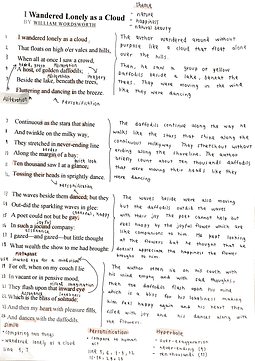 I Wandered Lonely as a Cloud
BY WILLIAM WORDSWORTH
theme
- nature
- happiness
- natural beauty
I wandered lonely as a cloud
That floats on high o'er vales and hills,
When all at once I saw a crowd,
A host, of golden daffodils;
Beside the lake, beneath the trees,
Fluttering and dancing in the breeze.
Alliteration
imagery
personification
The author wandered around without
purpose like a cloud that float along
over the hills.
Then, he saw a group of yellow
daffodils beside a lake, beneath the
trees. They were moving in the wind
like they were dancing
Continuous as the stars that shine
And twinkle on the milky way,
They stretched in never-ending line
Along the margin of a bay:
Ten thousand saw I at a glance,
Tossing their heads in sprightly dance.
quick look
personification
The daffodils continue along the way he
walks like the stars that shine along the
continuous milkyway. They stretched without
ending along the shoreline. The author
briefly count about ten thousand daffodils
that were moving their heads like they
were dancing
The waves beside them danced; but they
Out-did the sparkling waves in glee:
A poet could not but be gay,
In such a jocund company:
I gazed—and gazed—but little thought
What wealth the show to me had brought:
cheerful, happy
The waves beside were also moving
but the daffodils outdid the waves
with their joy. The poet cannot help but
feel happy by the joyful flower which are
like companions to him. He kept looking
at the flowers but he thought that he
didn't appreciate the happiness the flower
brought to him.
For oft, when on my couch I lie
In vacant or in pensive mood,
They flash upon that inward eye
Which is the bliss of solitude;
And then my heart with pleasure fills,
And dances with the daffodils.
The author often lie on his couch with
his mind empty and with sad thoughts.
then the daffodils flash upon his mind
which is a bliss for his loneliness making
him feel happy again and his heart then
filled with joy and his dances along with
the flowers.
Simile
- comparing two things
- wandered lonely as a cloud
line 1, 7
Personification
- compare to human
Hyperbole
- over-exaggeration
- never-ending (9)
- ten thousands (11)